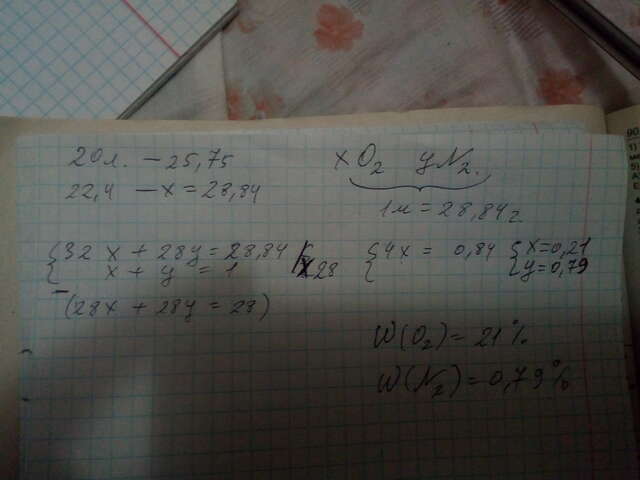 20л. – 25,75
22,4 – x = 28,84
x O₂ y N₂.
1м = 28,84г
{32x + 28y = 28,84
x + y = 1 | x28
–(28x + 28y = 28)
{4x = 0,84 {x=0,21
y=0,79
W(O₂) = 21%
W(N₂) = 0,79%